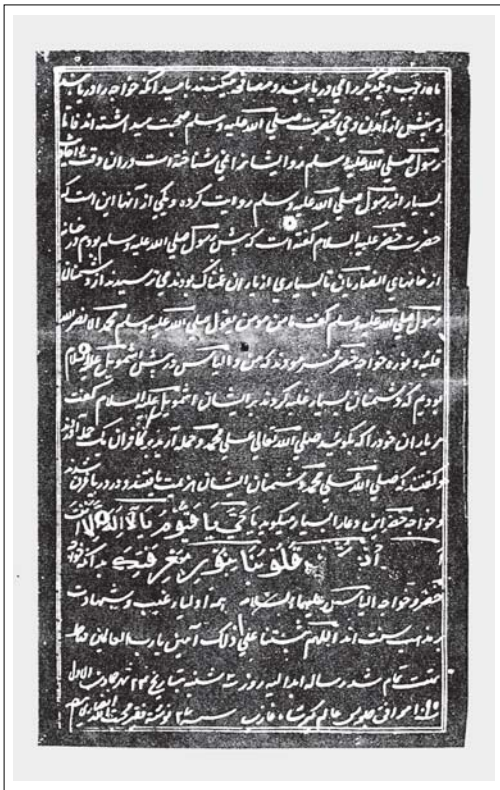 ماه رجب و یکدیگر را می دریابند و مصافحه میکنند با صد آنکه خواجه را دریابند
و پیش از آمدن وحی آنحضرت صلی الله علیه وسلم صحبت میداشته اند فاما
رسول صلی الله علیه وسلم روایشانرا نمی شناخته است دران وقت احادیث
بسیار از رسول صلی الله علیه وسلم روایت کرده و یکی از آنها این است که
حضرت خضر علیه السلام گفته است که پیش رسول صلی الله علیه وسلم بودم در خانه
از خانهای انصاریان تا بسیاری از یاران غمناک بودند می ترسیدند از دشمنان
رسول صلی الله علیه وسلم گفت ما من مومن یقول صلی الله علیه وسلم محمد الا نضر الله
قلبه و نوره خواجه خضر فرمودند که من و الیاس در پیش اشمویل علیه السلام
بودیم که دشمنان بسیار غلبه کردند بر ایشان اشمویل علیه السلام گفت
مر یاران خود را که بگوئید صلی الله تعالی علی محمد و حمله آرید بر کافران یک حمله آوردند
و گفتند که صلی الله علی محمد دشمنان ایشان هزیمت یافتند و در دریا غرق شدند
و خواجه خضر این دعا را بسیار میگوید یا حی یا قیوم یا لا اله الا
انت قلوبنا بنور معرفتک بدانکه خواجه
خضر و خواجه الیاس علیهما السلام همه اولیاء غیب و شهادت
بر مذهب سنت اند اللهم ثبتنا علی ذلک آمین یا رب العالمین
تمت تمام شد رساله ابدالیه روز شنبه بتاریخ ۲۳ شهر جمادی الاول
موافق جلوس عالم گیر شاه غازی سنه نوشته فقیر